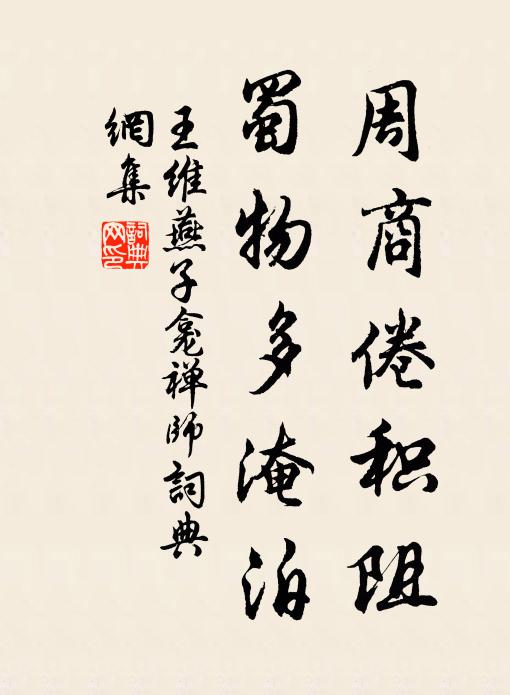 周商倦积阻
蜀物多淹泊
王维燕子龛禅师詞典
網集
詞典网印